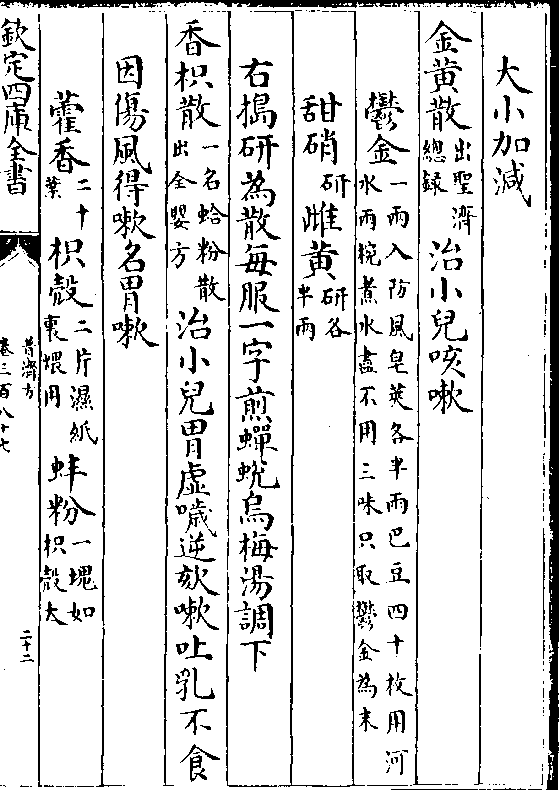 大小加減
金黄散出聖濟總録治小兒咳嗽
鬱金一兩入防風皂莢各半兩巴豆四十枚用河水兩椀煮水盡不用三味只取鬱金為末
甜硝研雌黄研各半兩
右搗研為散每服一字煎蟬蛻烏梅湯調下
香枳散一名蛤粉散出全嬰方治小兒胃虚噦逆欬嗽吐乳不食
因傷風得嗽名胃嗽
藿香二十葉枳殼二片濕紙裏煨用蚌粉一塊如枳殼大
欽定四庫全書
普濟方
卷三百八十七
二十二